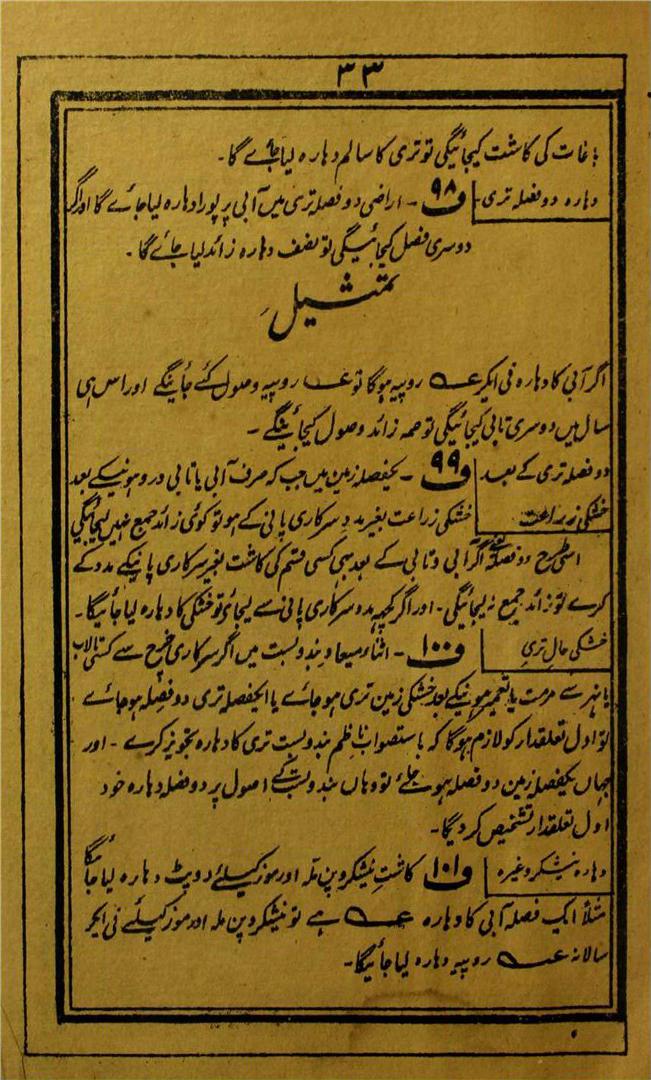 ۳۳
باغات کی کاشت کیجائیگی تو تری کا سالم دہارہ لیا جاے گا۔
دہارہ دو فصلہ تری۔ ف ۹۸ ۔ اراضی دو فصلہ تری میں آبی پر پورا دہارہ لیا جاے گا اور اگر
دوسری فصل کیجائیگی تو نصف دہارہ زائد لیا جاے گا۔
تمثیل
اگر آبی کا دہارہ فی ایکر روپیہ ہوگا تو روپیہ وصول کئے جائینگے اور اس ہی
سال میں دوسری تابی کیجائیگی تو زائد وصول کیجائینگے۔
دو فصلہ تری کے بعد ف ۹۹ ۔ یکفصلہ زمین میں جب کہ صرف آبی یا تابی در و ہونیکے بعد
خشکی زراعت خشکی زراعت بغیر مدد سرکاری پانی کے ہو تو کوئی زائد جمع نہیں لیجائیگی
اسی طرح دو فصلہ اگر آبی و تابی کے بعد ہی کسی قسم کی کاشت بغیر سرکاری پانیکے مدد کے
کرے تو زائد جمع نہ لیجائیگی۔ اور اگر کچھ مدد سرکاری پانی سے لیجائی تو خشکی کا دہارہ لیا جائیگا۔
خشکی حال تری ف ۱۰۰ ۔ اثناء میعاد بندوبست میں اگر سرکاری خرچ سے کسی تالاب
یا نہر سے مرمت یا تعمیر ہونیکے بعد خشکی زمین تری ہو جاے یا یکفصلہ تری دو فصلہ ہو جاے
تو اول تعلقدار کو لازم ہوگا کہ باستصواب ناظم بندوبست تری کا دہارہ تجویز کرے۔ اور
جہاں یکفصلہ زمین دو فصلہ ہو جاے تو وہاں بندوبست کے اصول پر دو فصلہ دہارہ خود
اول تعلقدار تشخیص کر دیگا۔
دہارہ نیشکر وغیرہ ف ۱۰۱ کاشت نیشکر و پن ملہ اور موز کیلئے دوپٹ دہارہ لیا جائیگا
مثلاً ایک فصلہ آبی کا دہارہ ہے تو نیشکر و پن ملہ اور موز کیلئے فی ایکر
سالانہ روپیہ دہارہ لیا جائیگا۔